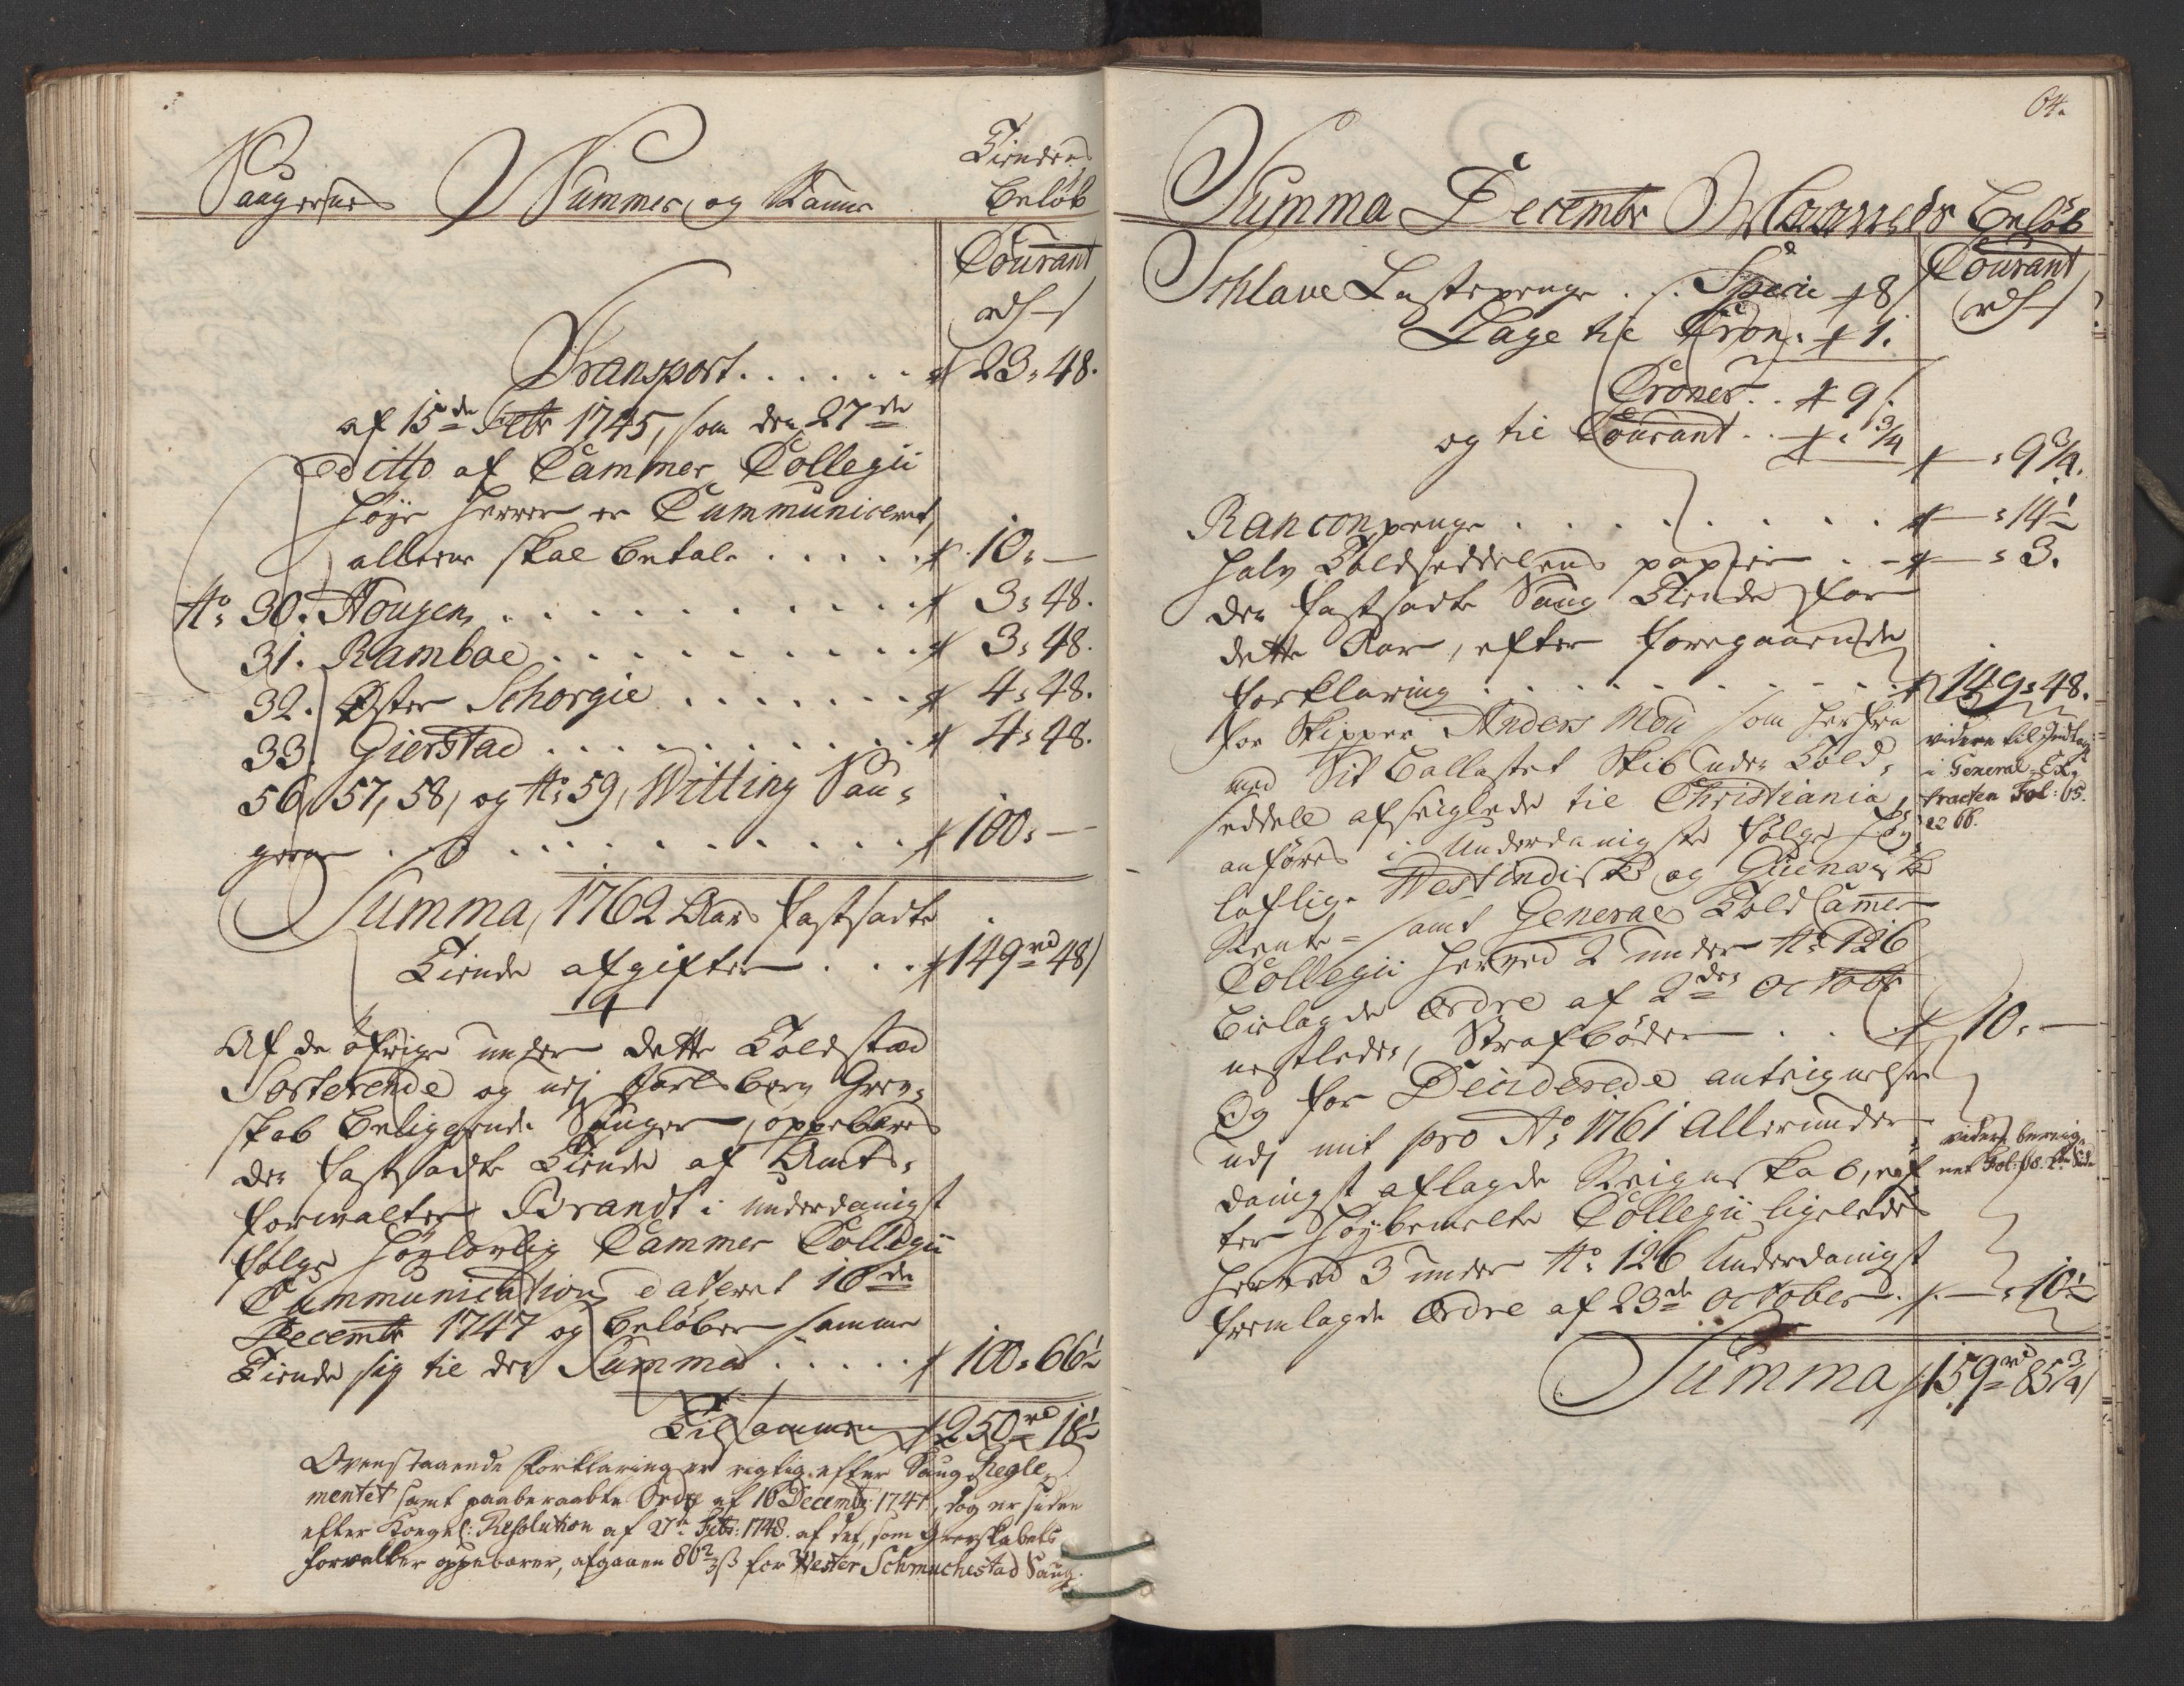 Saugernes Nummer og Nanne
Tiendens
Beløb
Courant
rd ß
Transport . . . . . . # 23 : 48.
af 15de Febr 1745, som den 27de
ditto af Cammer Collegii
høye Herrer er Cummuniceret,
alleene skal betale . . . . . # 10 : —
No: 30. Hougen . . . . . . . # 3 : 48.
31. Ramboe . . . . . . . # 3 : 48.
32. Øster Schorgie . . . . . . # 4 : 48.
33. Gierstad . . . . . . . # 4 : 48.
56, 57, 58, og No: 59, Witting Sau-
gene . . . . . . . . # 100 : —
Summa, 1762 Aars fastsadte
Tiende afgifter . . . # 149 rd 48 ß
Af de øfrige under dette Toldstæd
Sorterende og udj Jarlsberg Grev-
skab beliggende Sauger, oppebæres
den fastsadte Tiende af Amts-
forvalter Brandt i underdanigst
følge høylovlig Cammer Collegii
Cummunication dateret 16de
Decembr 1747 og beløber samme
Tiende sig til den Summa . . . . . # 100 : 66½
Tilsammen # 250 rd 18½
Ovenstaaende Forklaring er rigtig efter Saug Regle-
mentet samt paaberaabte Ordre af 16 Decembr: 1747, dog er siden
efter Kongel: Resolution af 27de Febr: 1748. af det, som Grevskabets
Forvalter oppebærer, afgaaen 80⅔ ß for Wester Schmuchestad Saug.
64.
Summa Decembr Maaneds Beløb
Courant
rd ß
Schlave Lastepenge . . . Specie # 8
Lage til Cron. # 1.
Croner . . # 9.
og til Courant . . # : ¾ # — : 9¾.
Ranconpenge . . . . . . . . # — : 14½
Halv Toldseddelens papier . . # — : 3.
Den fastsadte Saug Tiende for
dette Aar, efter foregaaende
forklaring . . . . . . . . # 149 : 48.
for Skipper Anders Mou som herfra
med Sit Ballastet Skib uden Told-
seddell afseiglede til Christiania
anføres i Underdanigste følge Høy-
loflige Westindisk og Guineisk
Rente- samt General Told Cammer
Collegii herved 2 under No: 126
bielagde Ordre af 2den Octobr
nestleden, Strafbøder . . . # 10 : —
videre til Indtægt
i General-Ex-
tracten Fol: 65.
a 66.
Og for Deciderede antegnelser
udj mit pro Ao: 1761 Allerunder-
danigst aflagde Reignskab, ef-
ter Høybemelte Collegii ligeledes
herved 3 under No: 126 Underdanigst
fremlagde Ordre af 23de October . # — : 10½
videre bereig-
net Fol: 2den Side
Summa # 159 rd 85¾ ß